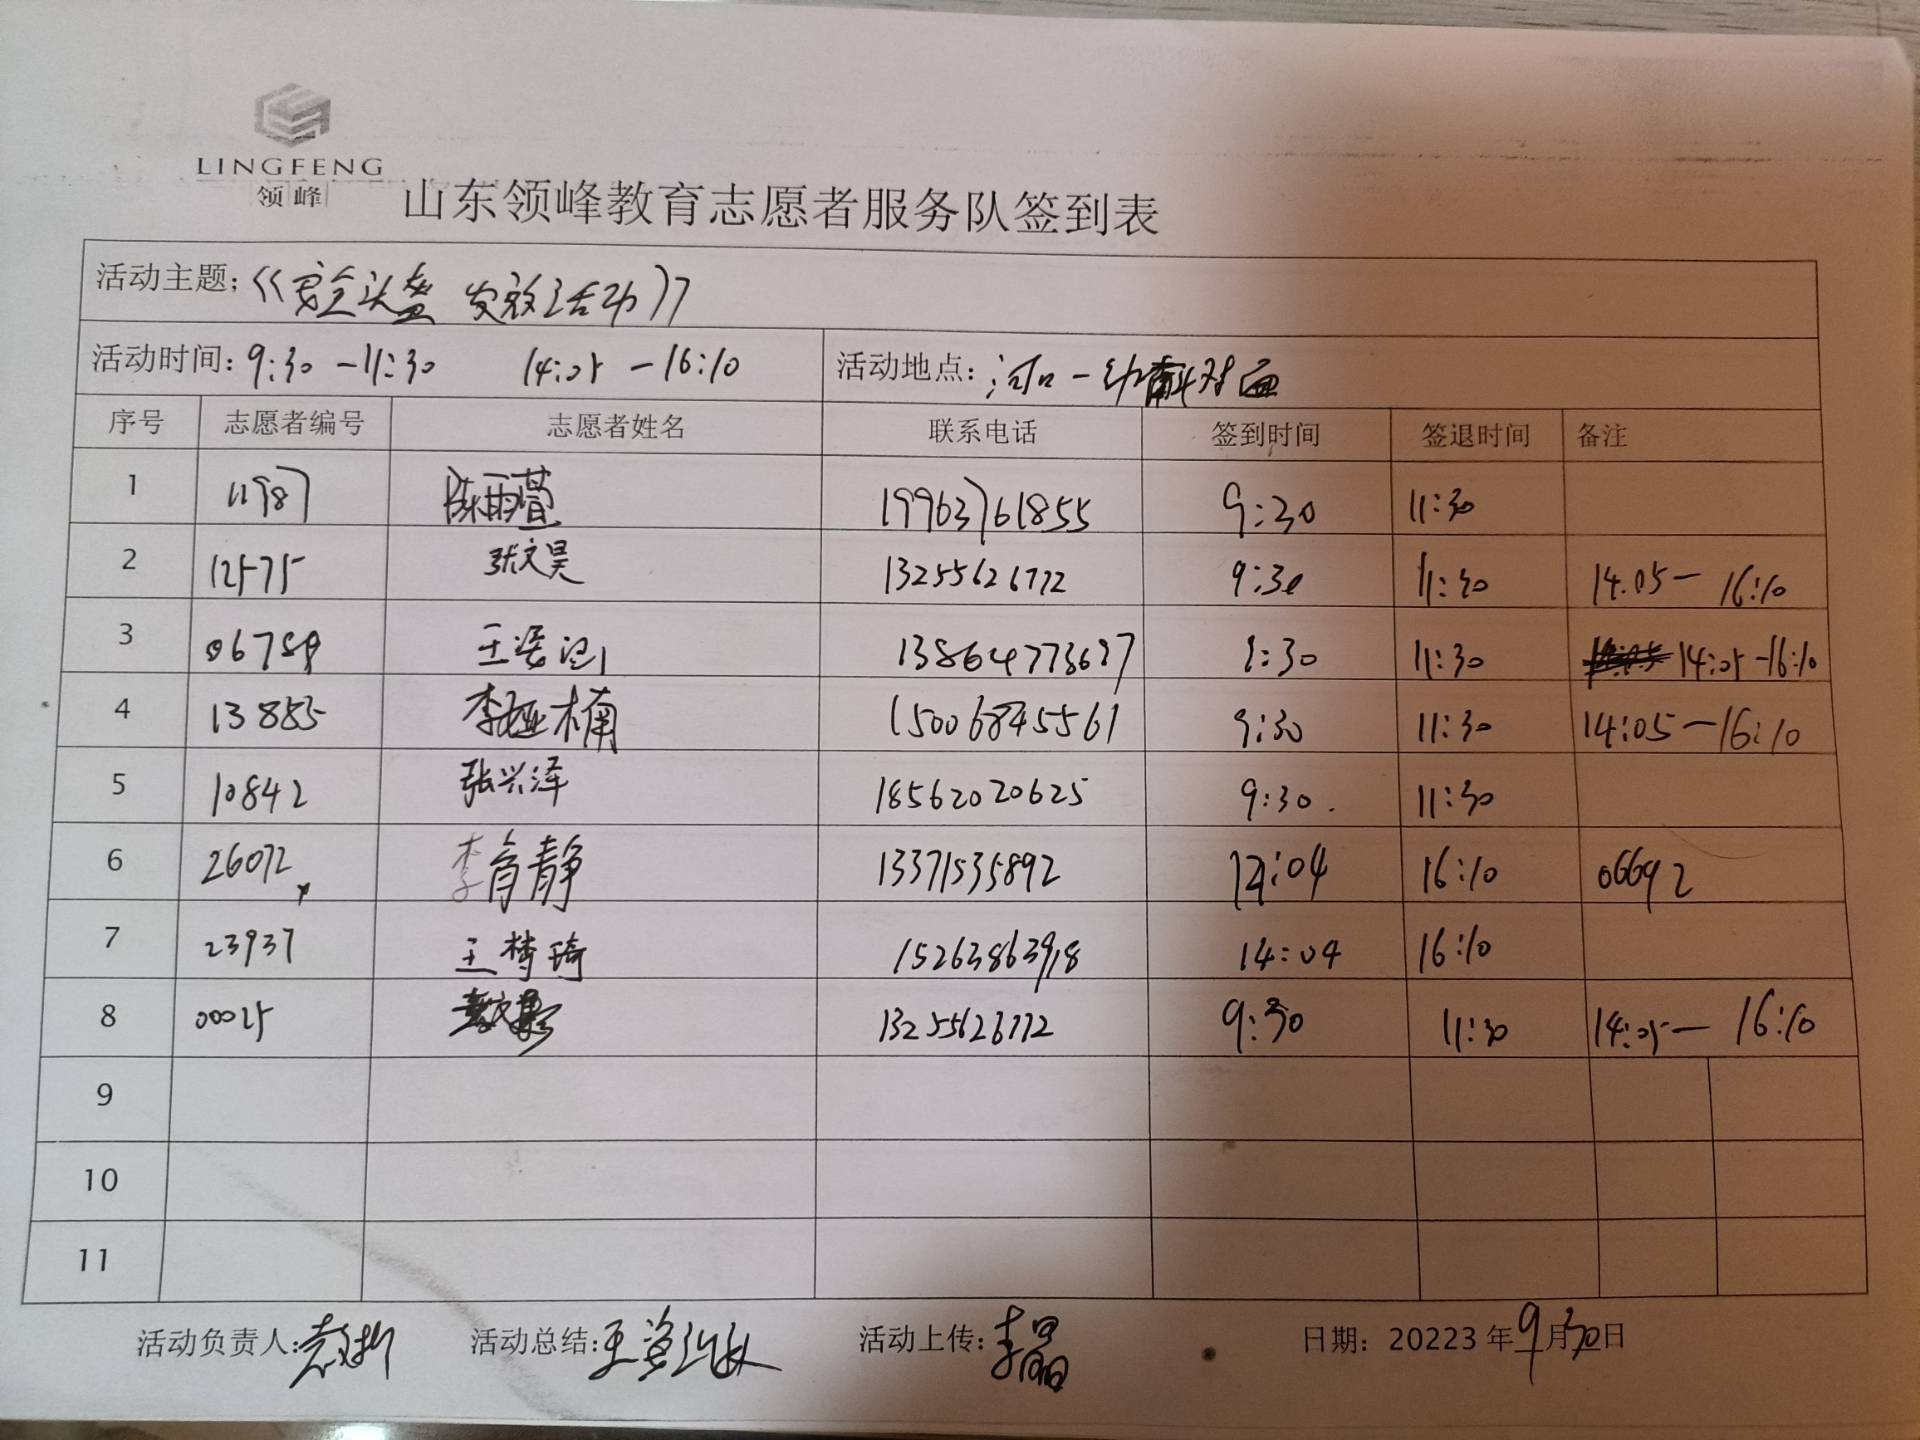 LINGFENG
领峰
山东领峰教育志愿者服务队签到表
活动主题:《安全头盔 发放活动》
活动时间:9:30-11:30 14:05-16:10 活动地点:河口一幼对面
序号 志愿者编号 志愿者姓名 联系电话 签到时间 签退时间 备注
1 11987 陈雨萱 19963761855 9:30 11:30
2 12575 张文昊 13255626772 9:30 11:30 14.05-16:10
3 06789 王 13864773697 9:30 11:30 14:05-16:10
4 13855 李娅楠 15006845561 9:30 11:30 14:05-16:10
5 10842 张兴泽 18562020625 9:30. 11:30
6 26072 李育静 13371535892 14:04 16:10 06692
7 23937 王梦琦 15263863918 14:04 16:10
8 00025 13255626772 9:30 11:30 14:05-16:10
9
10
11
活动负责人: 活动总结:王 活动上传:李晶 日期:20223年9月30日